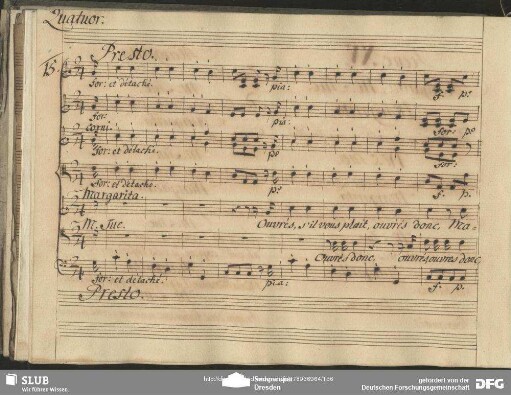 Quatuor.
Presto.
15
for: et détaché.
pia:
f. p:
for:
pia:
for: po
Corni
for: et détaché.
po
for:
for: et détaché.
p:
f. p.
Margarita.
Ouvrés, s'il vous plait, ouvrés donc,
Ouvrés donc, ouvrés, ouvres donc,
for: et détaché.
pia:
f. p.
Presto.
SLUB
Wir führen Wissen.
Dresden
gefördert von der
Deutschen Forschungsgemeinschaft
DFG